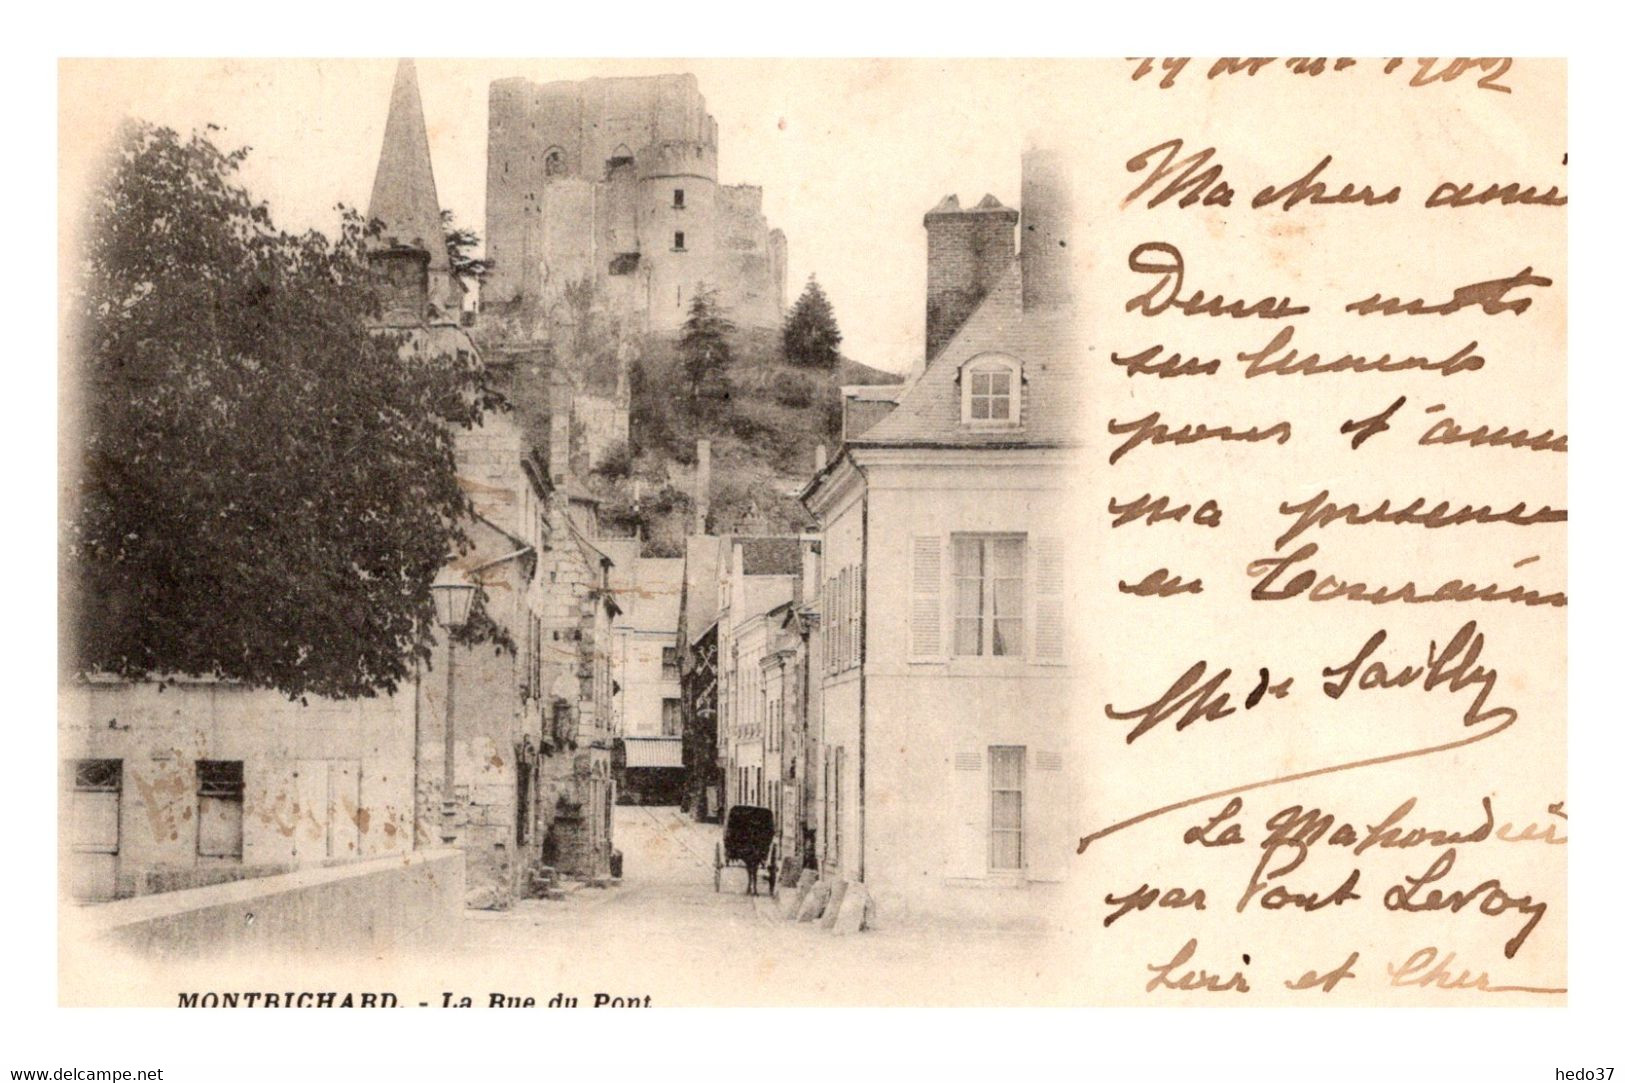 1902
Ma chere amie
Deux mots
seulement
pour t'
ma presence
en Touraine
de Sailly
La Mahoudière
par Pont Levoy
Loir et Cher
MONTRICHARD. - La Rue du Pont
www.delcampe.net
hedo37